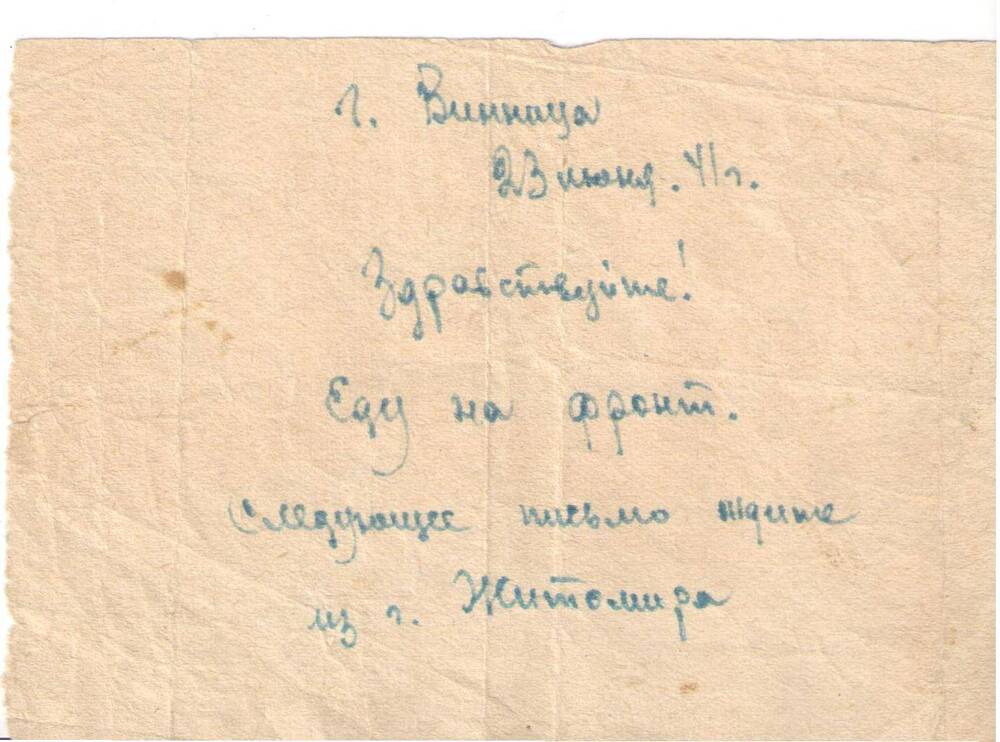 г. Винница
23 июня. 41 г.
Здравствуйте!
Еду на фронт.
Следующее письмо ждите
из г. Житомира